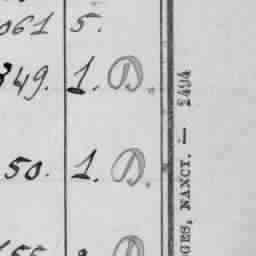 061 5.
349. 1. D.
50. 1. D.
GES, NANCY. — 2494